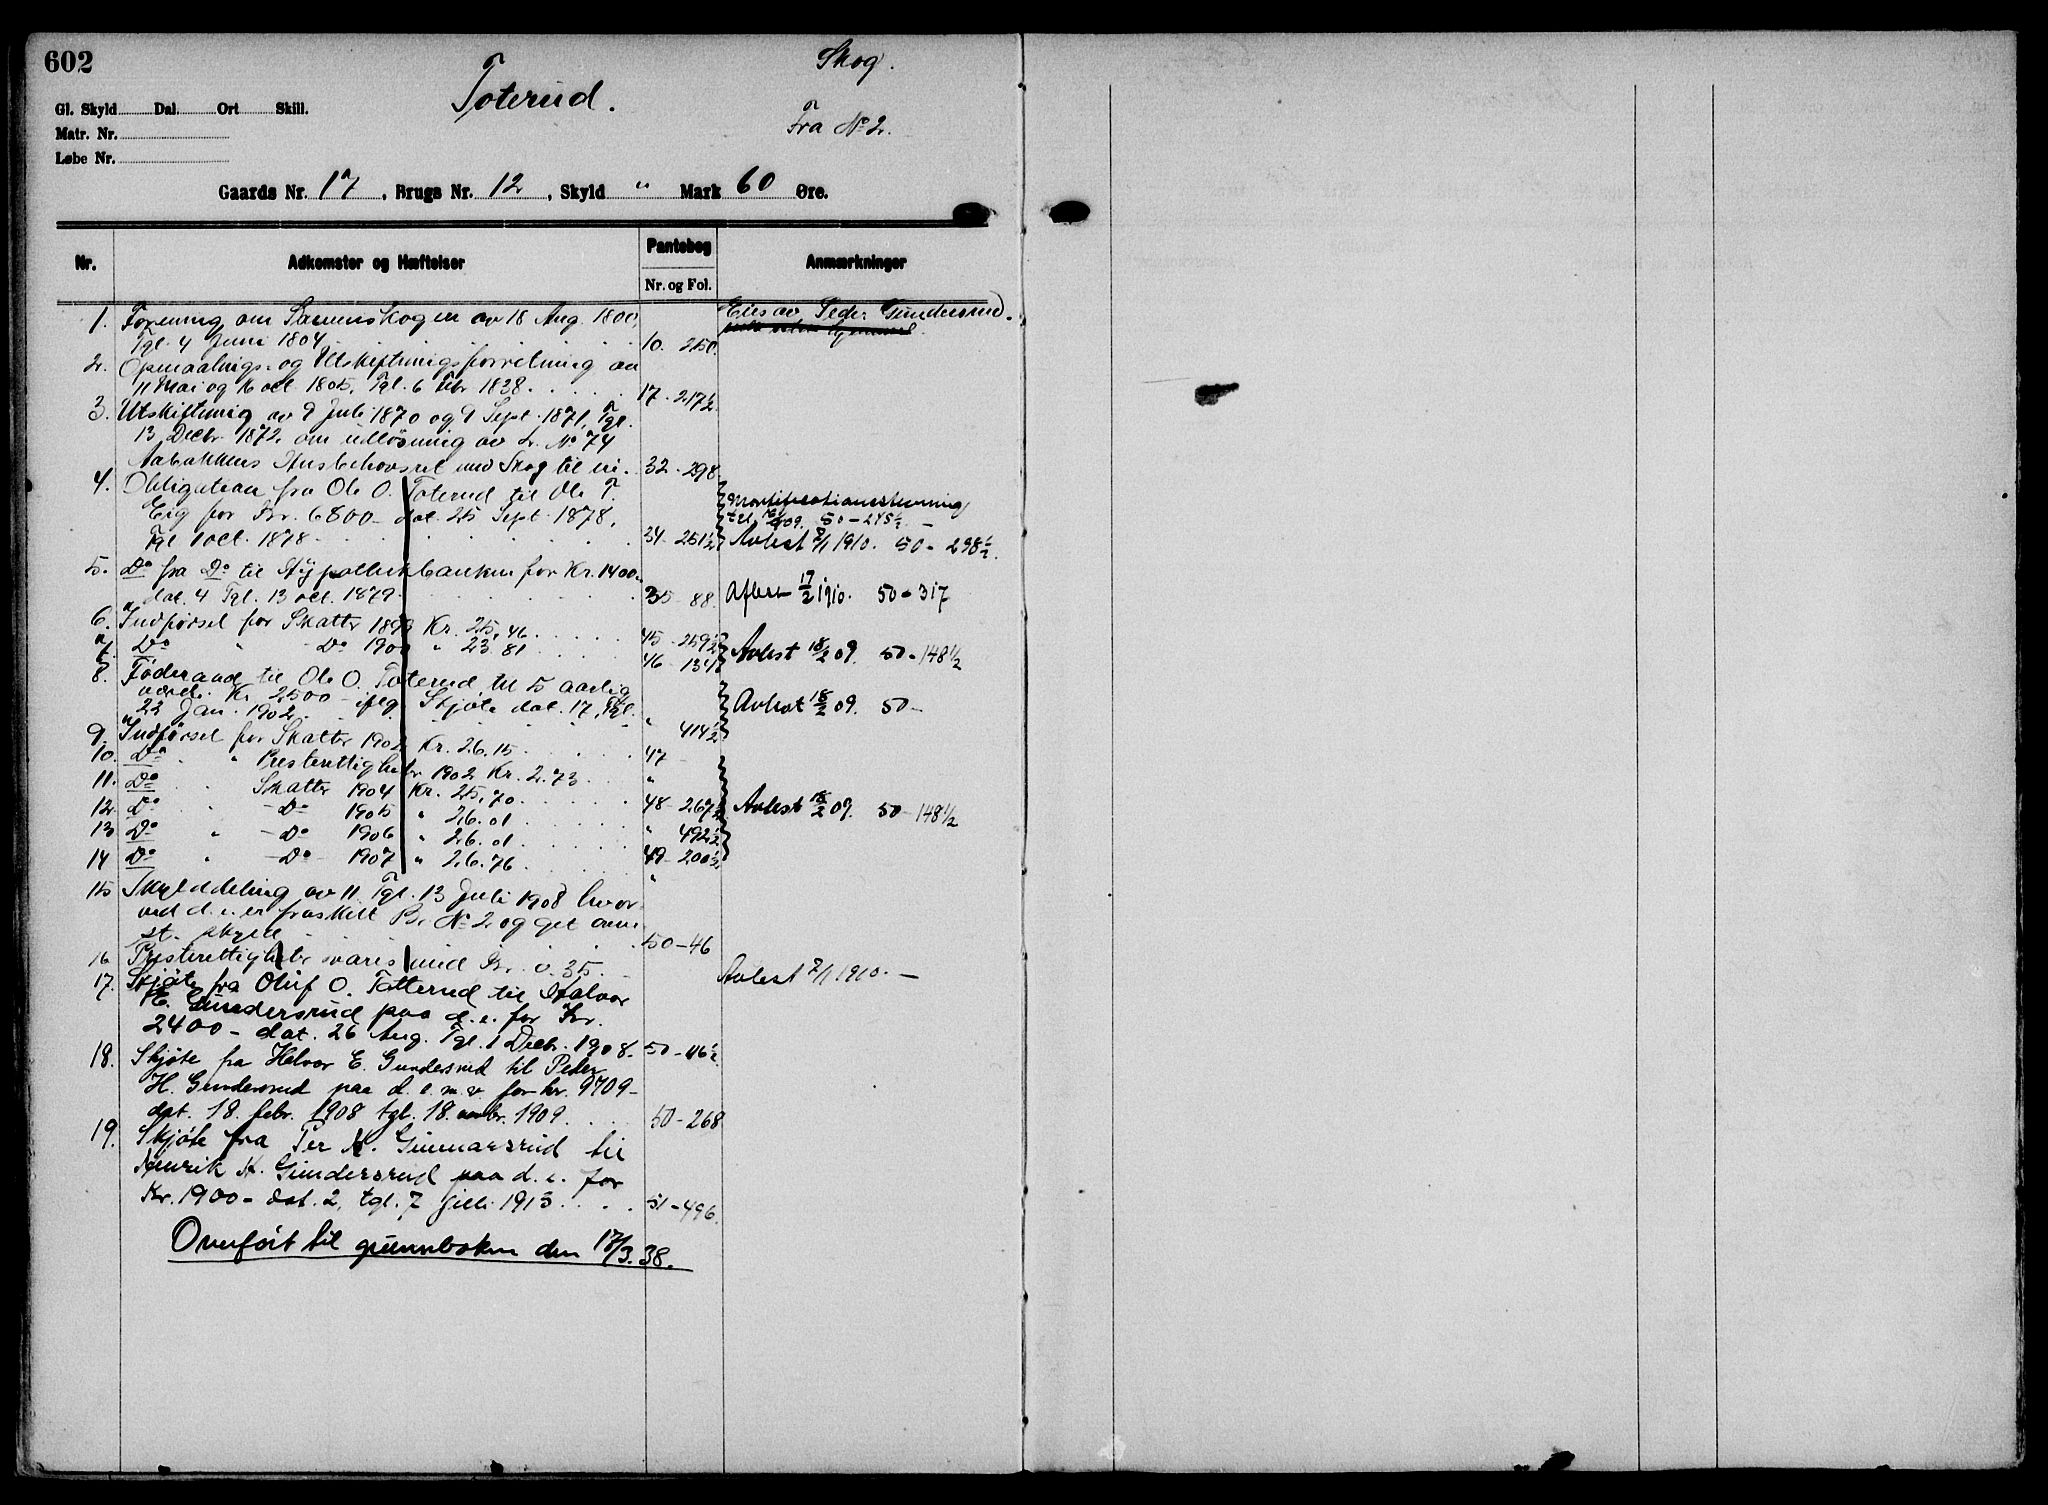 602
Toterud.
Skog.
Fra No 2.
Gl. Skyld Dal. Ort Skill.
Matr. Nr.
Løbe Nr.
Gaards Nr. 17, Brugs Nr. 12, Skyld " Mark 60 Øre.
Nr. Adkomster og Hæftelser Pantebog Nr. og Fol. Anmærkninger
1. Forening om Skogen av 18 Aug. 1800, Eies av Peder Gundersrud.
Tgl. 4 Juni 1804 10. 250.
2. Opmaalings- og Utskiftningsforretning av
11 Mai og 16 oct. 1805, Tgl. 6 Febr 1838. 17. 217½
3. Utskiftning av 9 Juli 1870 og 9 Sept. 1871, Tgl.
13 Decbr 1872, om utløsning av L. No 74
Husbehovsret med Skog til ei. 32. 298
4. Obligation fra Ole O. Toterud til Ole T.
Eig for Kr. 6800 - dat. 25 Sept. 1878, Mortifikationsstevning
Tgl 1 oct. 1878 34. 251½ Avlest 7/1 1910. 50 - 298½.
5. Do fra Do til Hypothekbanken for Kr. 1400.
dat. 4 Tgl. 13 oct. 1879. 35 88. Aflest 17/2 1910. 50 - 317
6. Indførsel for Skatter 1899 Kr. 25,46 45 - 259½
7. Do " Do 1900 " 23.81 46 134½ Avlest 18/2 09. 50 - 148 1/2
8. Føderaad til Ole O. Toterud til 5 aarlig
værdi Kr. 2500 - iflg Skjøte dat. 17, Tgl. Avlest 18/2 09. 50 -
22 Jan. 1902 " 414½
9. Indførsel for Skatter 1902 Kr. 26.15 47
10. Do " Presterettigheter 1902 Kr. 2.73 "
11. Do Skatter 1904 Kr. 25,70 48 - 267½ Avlest 18/2 09. 50 - 148 1/2
12. Do - Do 1905 " 26.01 " 492½
13 Do " - Do 1906 " 26.01 49 - 200½
14 Do " - Do - 1907 " 26.76 "
15 Skylddeling av 11 Tgl. 13 Juli 1908 hvor-
ved d. e. er fraskilt Br. No 2 og git
st. skyld 50 - 46
16 Presterettigheter svares med Kr. 0.35 - Avlest 7/1 1910. -
17. Skjøte fra Oluf O. Totterud til Halvor
E. Gundersrud paa d. e. for Kr.
2400 - dat. 26 Aug. Tgl. 1 Decbr. 1908. 50 - 46½
18. Skjøte fra Halvor E. Gundersrud til Peder
H. Gundersrud paa d. e. m. v. for kr. 9709 -
dat. 18. febr. 1908 tgl. 18. novbr. 1909. 50 - 268
19. Skjøte fra Per H. Gunnarsrud til
Henrik H. Gundersrud paa d. e. for
Kr. 1900 - dat. 2, tgl. 7 juli 1913. 51 - 496.
Overført til grunnboken den 17/3.38.